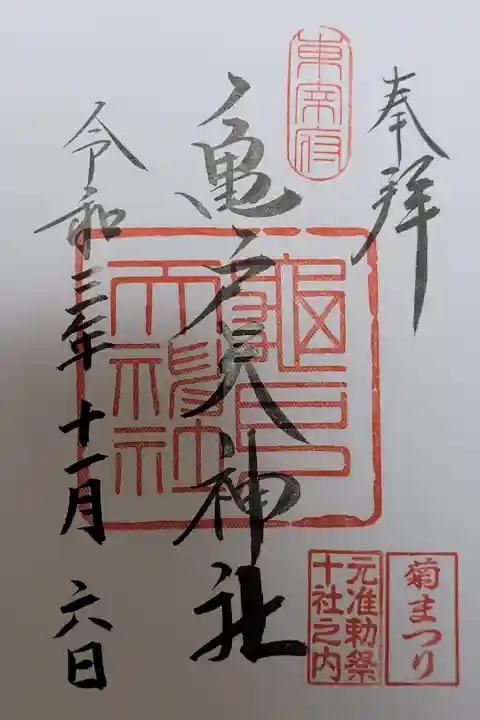 奉拝
東宰府
亀戸天神社
亀戸天神社
令和三年十一月六日
菊まつり
元准勅祭
十社之内